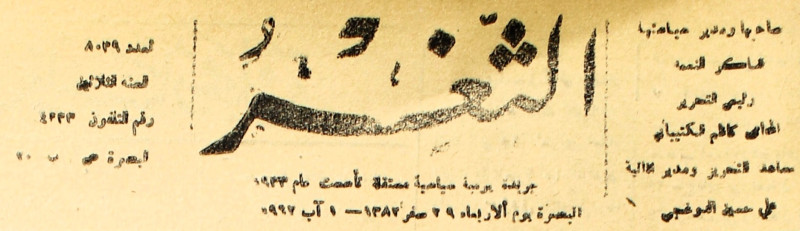 صاحبها ومدير سياستها
شاكر النعمه
رئيس التحرير
المحامي كاظم
مساعد التحرير ومدير المالية
علي حسين
الثغر
جريدة يومية سياسية مستقلة تأسست عام ١٩٣٣
البصرة يوم الأربعاء ٢٩ صفر ١٣٨٢ — ١ آب ١٩٦٢
العدد ٨٠٣٩
السنة الثلاثون
رقم التلفون ٤٢٣٣
البصرة ص . ب ٢٠